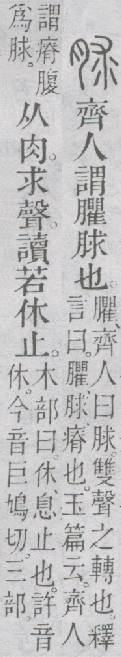 脙 齊人謂臞脙也。
臞、齊人曰脙。雙聲之轉也。釋
言曰。臞、脙瘠也。玉篇云。齊人
謂瘠腹
爲脙。
从肉。求聲。讀若休止。
木部曰。休、息止也。許音
休。今音巨鳩切。三部。